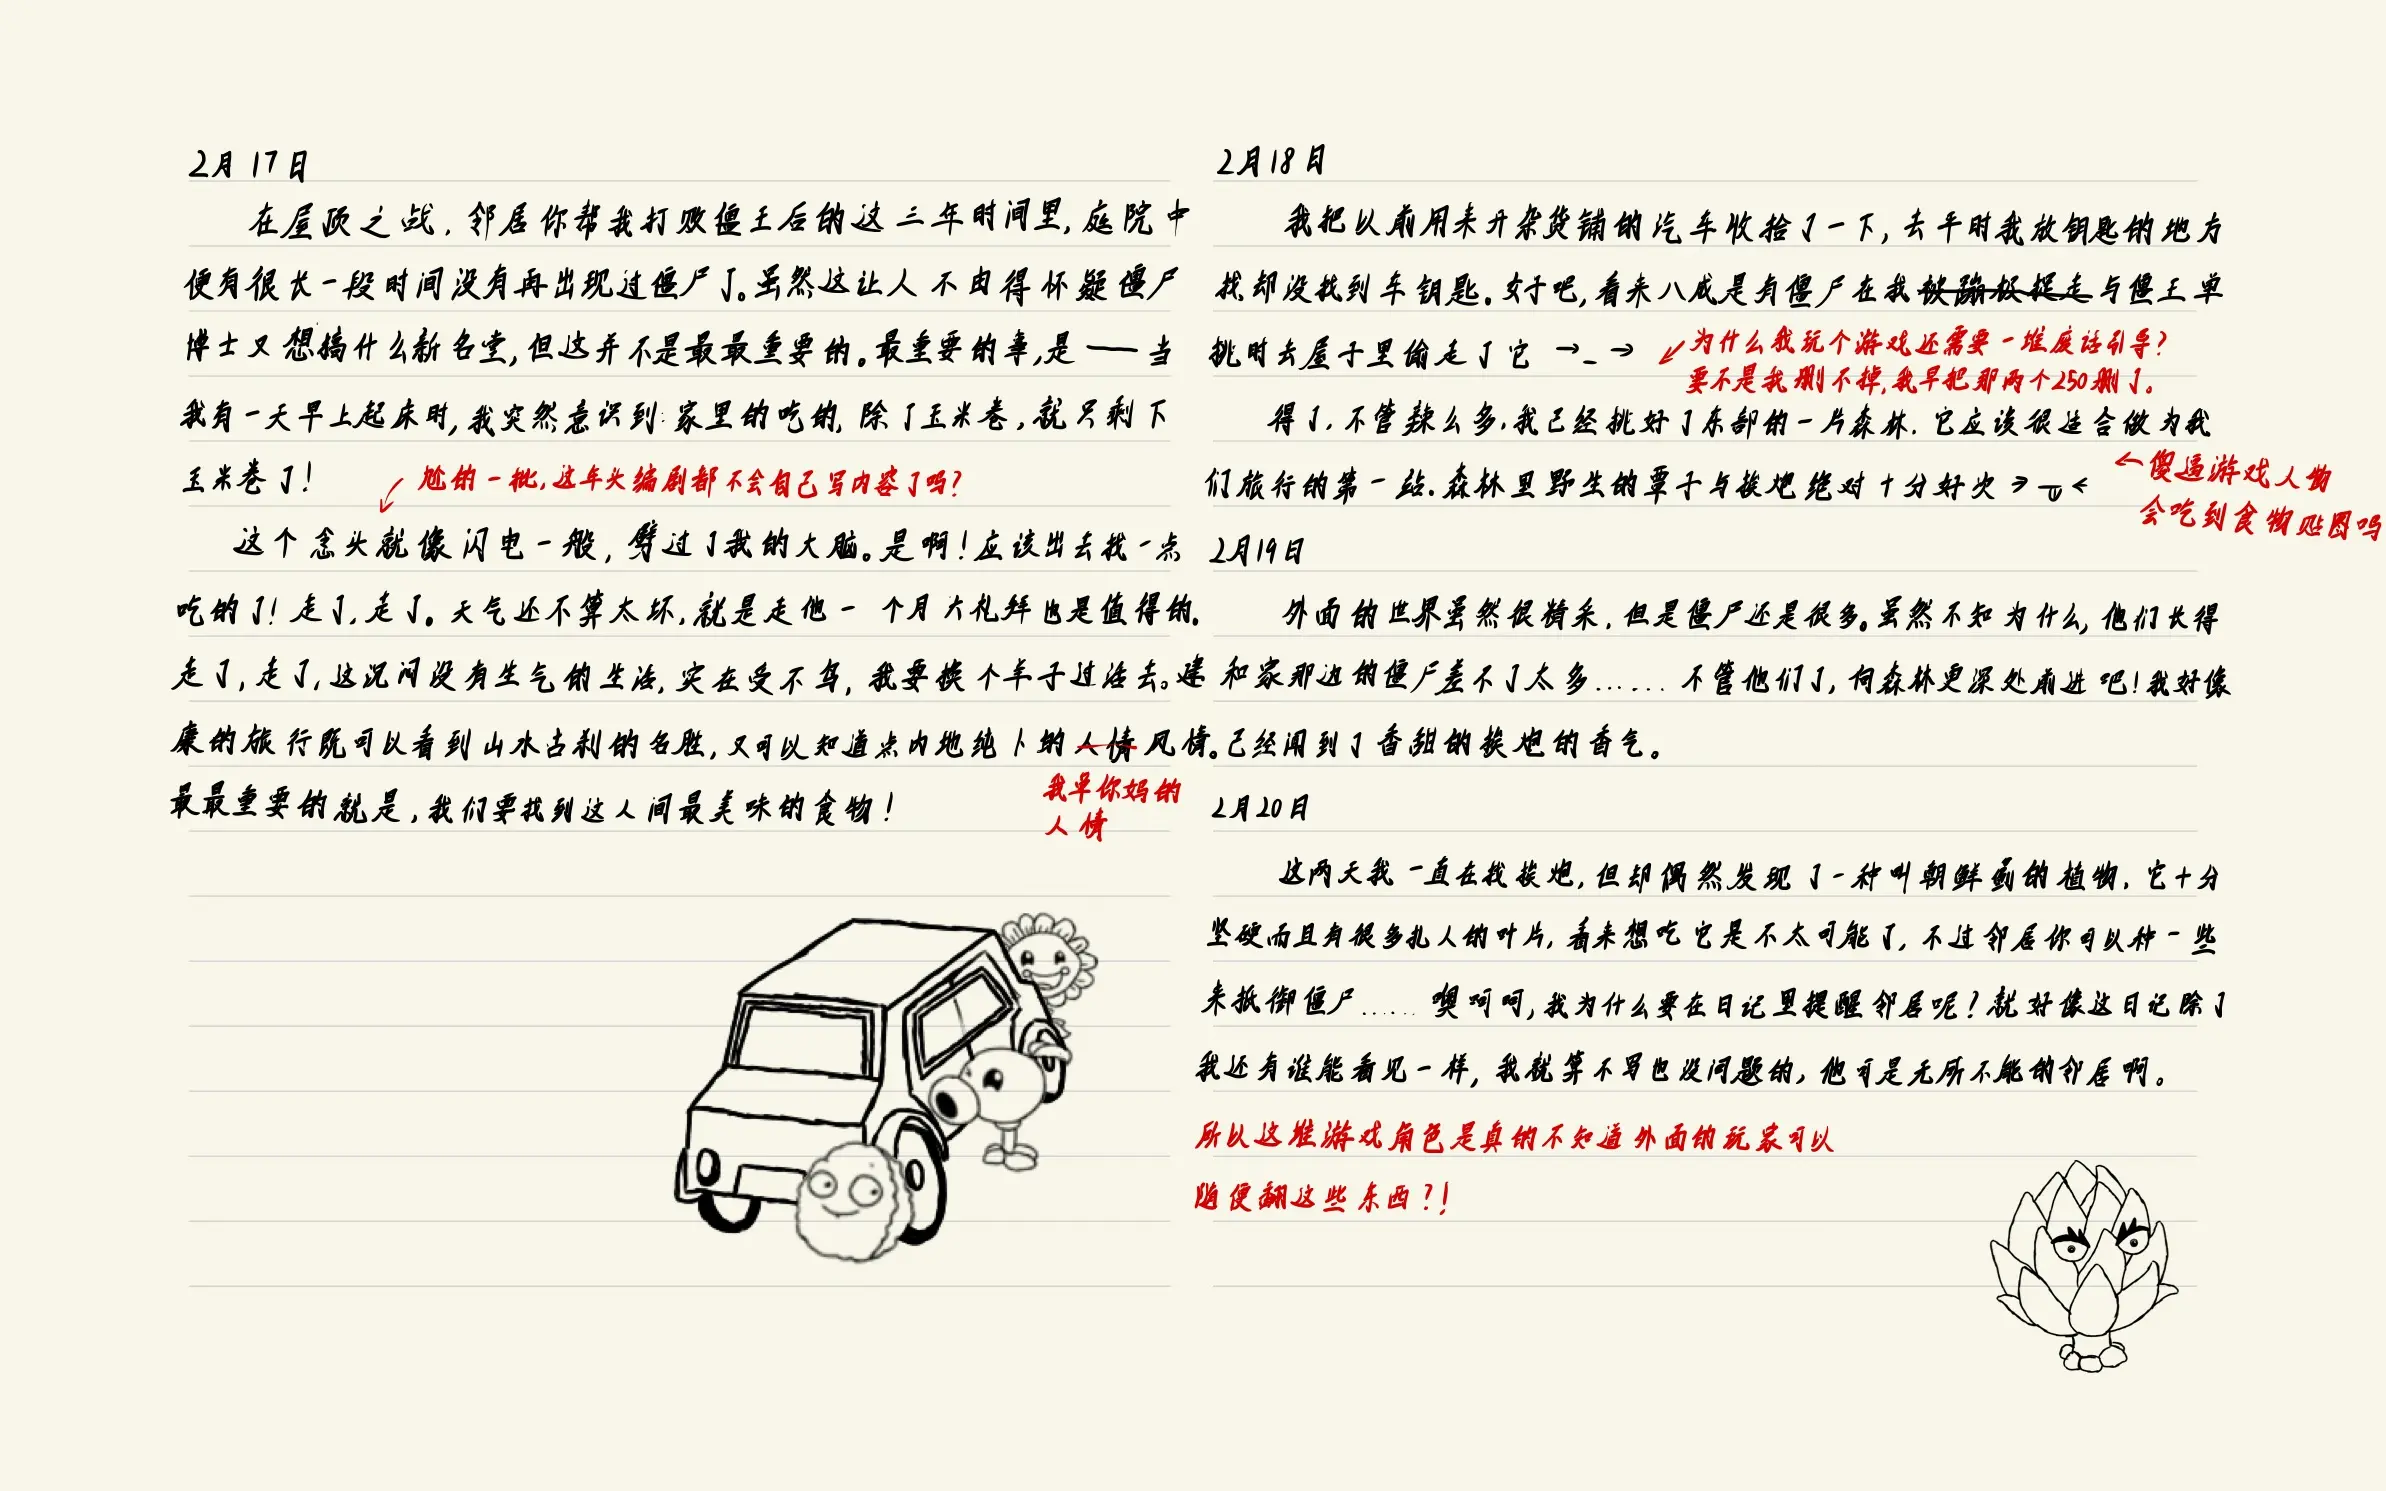 2月17日
在屋顶之战,邻居你帮我打败僵王后的这三年时间里,庭院中
便有很长一段时间没有再出现过僵尸了。虽然这让人不由得怀疑僵尸
博士又想搞什么新名堂,但这并不是最最重要的。最重要的事,是——当
我有一天早上起床时,我突然意识到:家里的吃的,除了玉米卷,就只剩下
玉米卷了!
尬的一批,这年头编剧都不会自己写内容了吗?
这个念头就像闪电一般,劈过了我的大脑。是啊!应该出去找一点
吃的了!走了,走了。天气还不算太坏,就是走他一个月六礼拜也是值得的.
走了,走了,这沉闷没有生气的生活,实在受不鸟,我要换个羊子过活去。健
康的旅行既可以看到山水古刹的名胜,又可以知道点内地纯卜的人情风情。
我草你妈的
人情
最最重要的就是,我们要找到这人间最美味的食物!
2月18日
我把以前用来开杂货铺的汽车收拾了一下,去平时我放钥匙的地方
找却没找到车钥匙。好吧,看来八成是有僵尸在我被蹦极捉走与僵王单
挑时去屋子里偷走了它 →_→
为什么我玩个游戏还需要一堆废话引导?
要不是我删不掉,我早把那两个250删了。
得了,不管辣么多,我已经挑好了东部的一片森林.它应该很适合做为我
们旅行的第一站.森林里野生的蕈子与挨炮绝对十分好次
傻逼游戏人物
会吃到食物贴图吗
2月19日
外面的世界虽然很精采,但是僵尸还是很多。虽然不知为什么,他们长得
和家那边的僵尸差不了太多……不管他们了,向森林更深处前进吧!我好像
已经闻到了香甜的挨炮的香气。
2月20日
这两天我一直在找挨炮,但却偶然发现了一种叫朝鲜蓟的植物.它十分
坚硬而且有很多扎人的叶片,看来想吃它是不太可能了,不过邻居你可以种一些
来抵御僵尸……噢呵呵,我为什么要在日记里提醒邻居呢?就好像这日记除了
我还有谁能看见一样,我就算不写也没问题的,他可是无所不能的邻居啊。
所以这堆游戏角色是真的不知道外面的玩家可以
随便翻这些东西?!